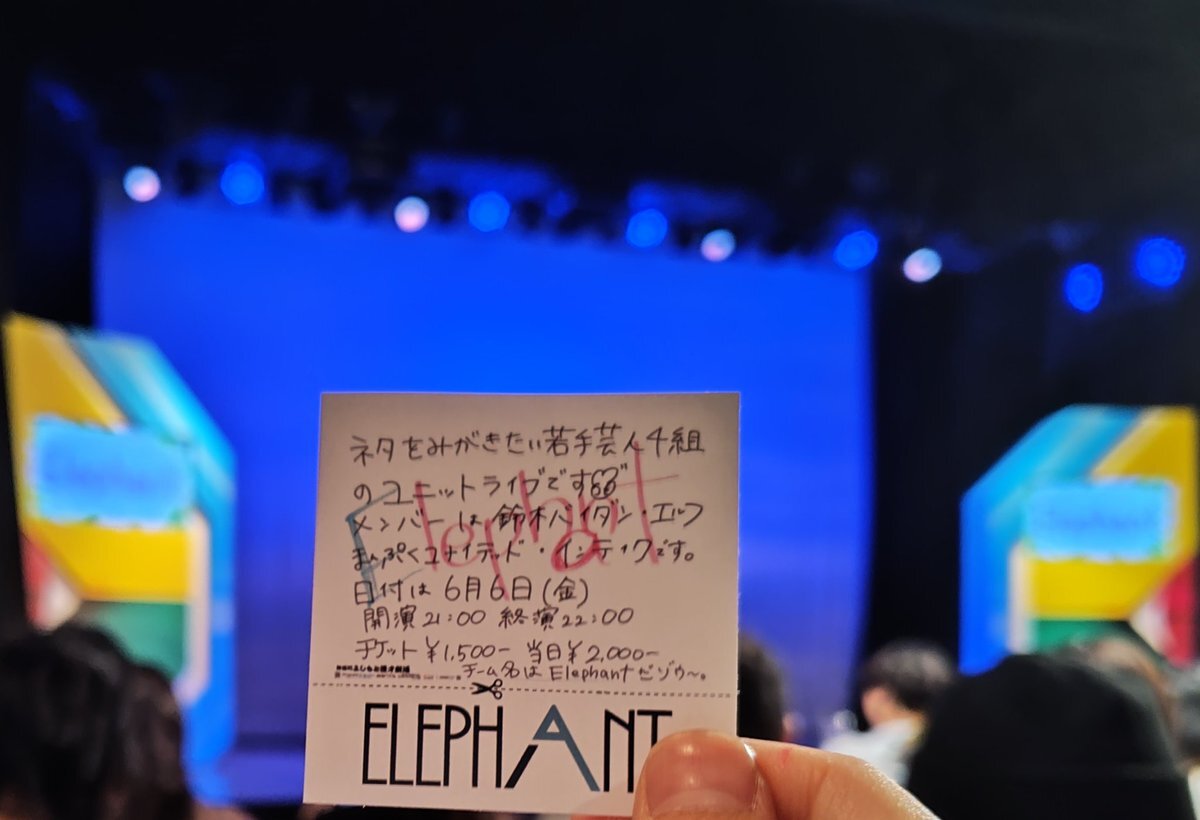 ネタをみがきたい若手芸人4組
のユニットライブです
Elephant
メンバーは鈴木バイダン・エルフ
まんぷくユナイテッド・インティクです。
日付は6月6日(金)
開演21:00 終演22:00
チケット¥1,500- 当日¥2,000-
チーム名はElephantだゾウ〜。
ELEPHANT
Elephant
Elephant